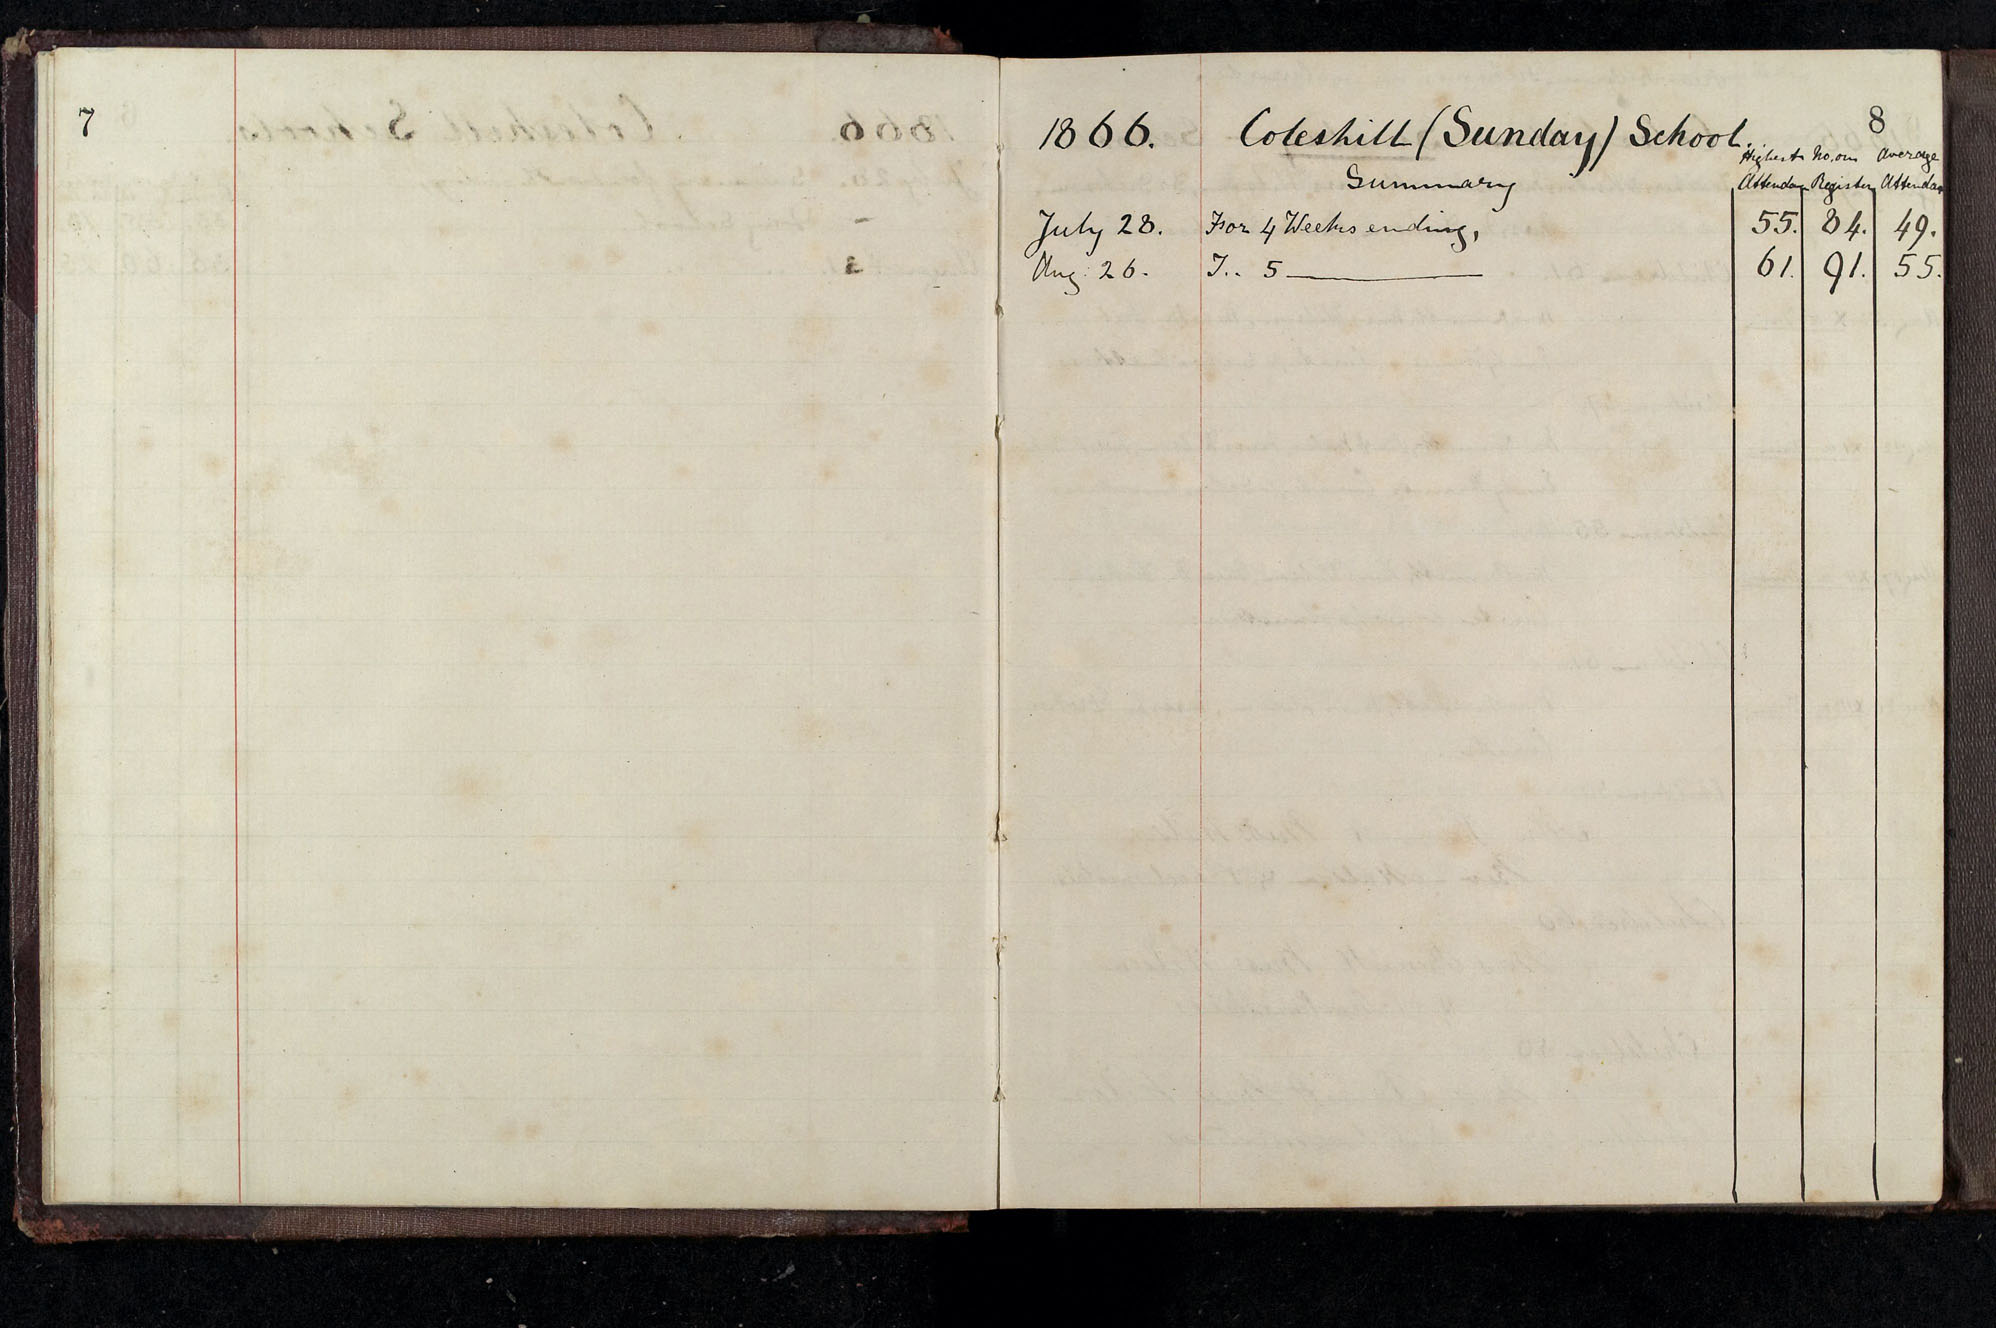 7
8
1866. Coleshill (Sunday) School.
Summary
Highest No. on Average
Attendce Register Attendce
July 28. For 4 Weeks ending, 55. 84. 49.
Aug: 26. 5 61. 91. 55.